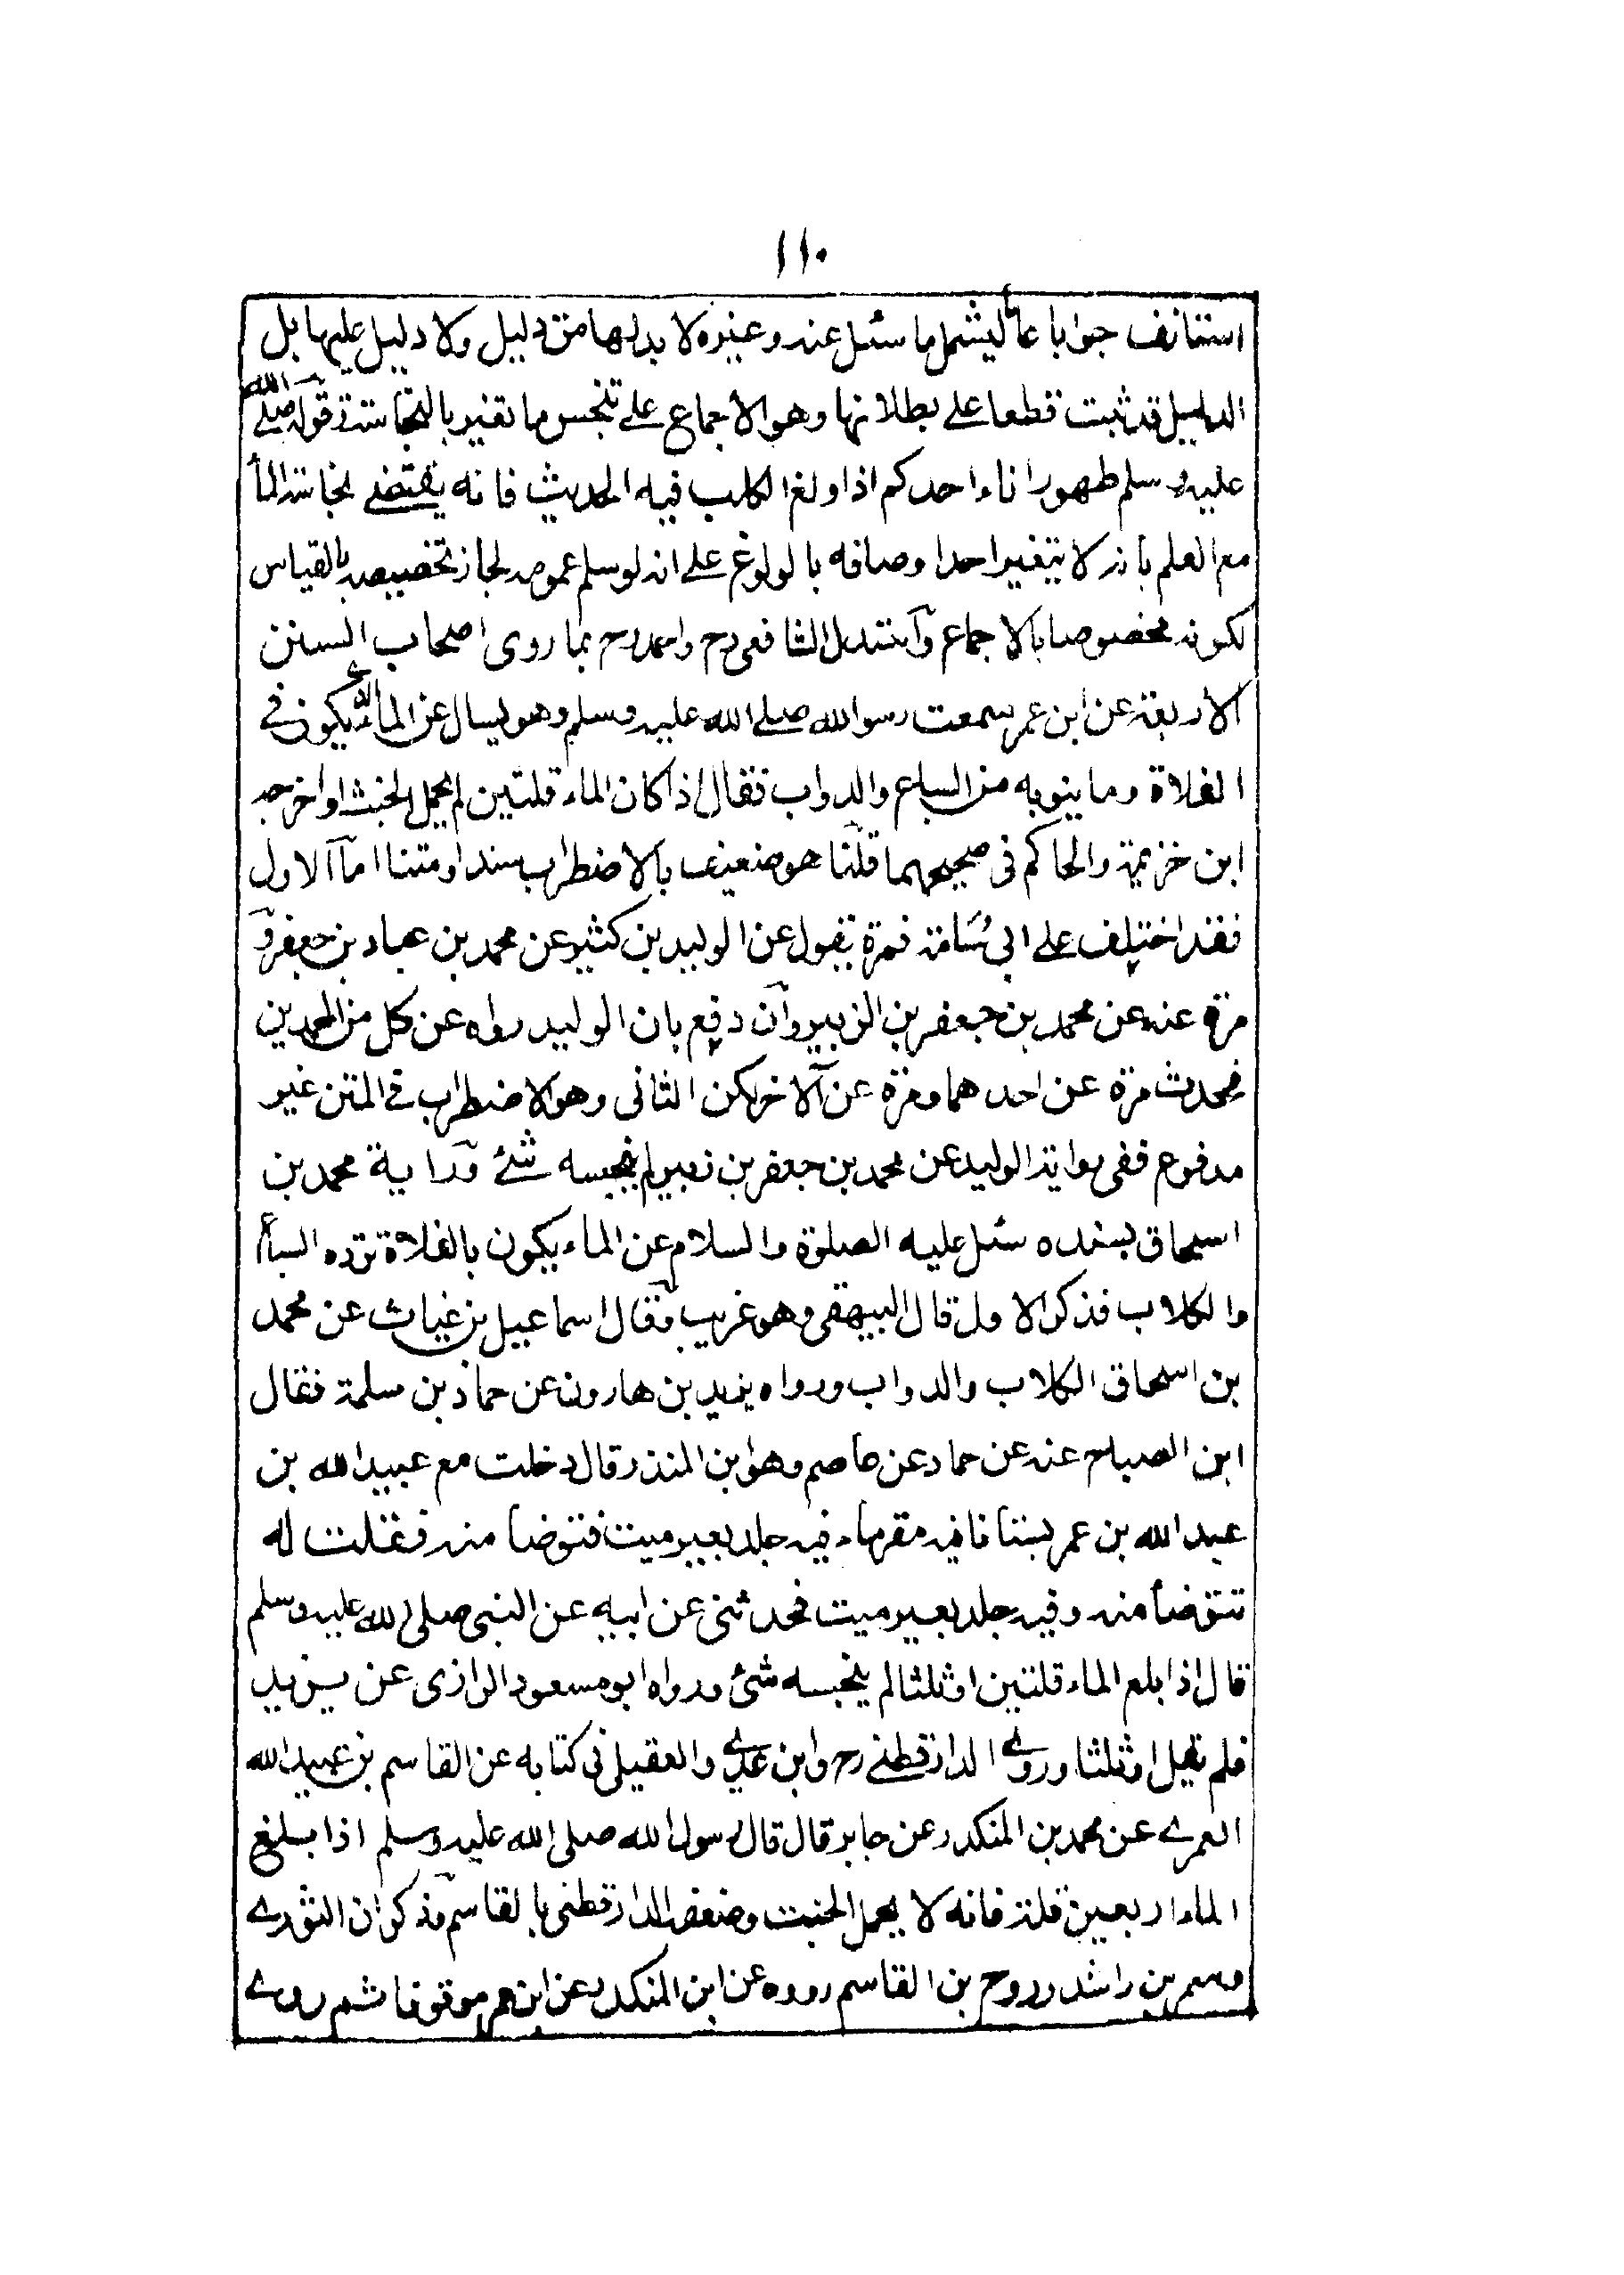 ١١٠
استانف جوابا عاما ليشمل ما سئل عنه وغيره لا بد لها من دليل ولا دليل عليها بل
الدليل قد ثبت قطعا على بطلانها وهو الاجماع على تنجس ما تغير بالنجاسة وقوله صلى الله
عليه وسلم طهور اناء احدكم اذا ولغ الكلب فيه الحديث فانه يقتضي نجاسة الماء
مع العلم بانه لا يتغير احد اوصافه بالولوغ على انه لو سلم عمومه لجاز تخصيصه بالقياس
لكونه مخصوصا بالاجماع واستدل الشافعى رح واحمد رح بما روى اصحاب السنن
الاربعة عن ابن عمر سمعت رسوالله صلى الله عليه وسلم وهو يسال عن الماء يكون في
الفلاة وما ينوبه من السباع والدواب فقال اذا كان الماء قلتين لم يحمل الخبث واخرجه
ابن خزيمة والحاكم فى صحيحهما قلنا هو ضعيف بالاضطراب سندا ومتنا اما الاول
فقد اختلف على ابى سامة فمرة يقول عن الوليد بن كثير عن محمد بن عباد بن جعفر و
مرة عنه عن محمد بن جعفر بن الزبير وان دفع بان الوليد رواه عن كل من المحمدين
فحدث مرة عن احدهما ومرة عن الاخر لكن الثانى وهو الاضطراب في المتن غير
مدفوع ففى رواية الوليد عن محمد بن جعفر بن زبير لم ينجسه شئ ورواية محمد بن
اسحاق بسنده سئل عليه الصلوة والسلام عن الماء يكون بالفلاة ترده السباع
والكلاب فذكر الاول قال البيهقى وهو غريب وقال اسماعيل بن عياش عن محمد
بن اسحاق الكلاب والدواب ورواه يزيد بن هارون عن حماد بن سلمة فقال
ابن الصباح عنه عن حماد عن عاصم وهو ابن المنذر قال دخلت مع عبيد الله بن
عبد الله بن عمر بستانا فيه مقر ماء فيه جلد بعير ميت فتوضا منه فقلت له
تتوضأ منه وفيه جلد بعير ميت فحدثنى عن ابيه عن النبى صلى الله عليه وسلم
قال اذا بلغ الماء قلتين او ثلثا لم ينجسه شئ ورواه ابو مسعود الرازى عن يزيد
فلم يقل او ثلثا وروى الدارقطنى رح وابن عدي والعقيلى فى كتابه عن القاسم بن عبيد الله
العمرى عن محمد بن المنكدر عن جابر قال قال رسول الله صلى الله عليه وسلم اذا بلغ
الماء اربعين قلة فانه لا يحمل الخبث وضعفه الدارقطنى بالقاسم وذكر ان الثوري
ومعمر بن راشد وروح بن القاسم رووه عن ابن المنكدر عن ابن عمر موقوفا ثم روى